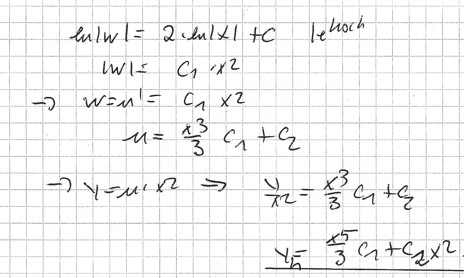 ln|w| = 2·ln|x| + c |e^hoch
|w| = c₁ · x²
→ w = u' = c₁ x²
u = x³/3 c₁ + c₂
→ y = u · x² ⇒ y/x² = x³/3 c₁ + c₂
yₕ = x⁵/3 c₁ + c₂ x²